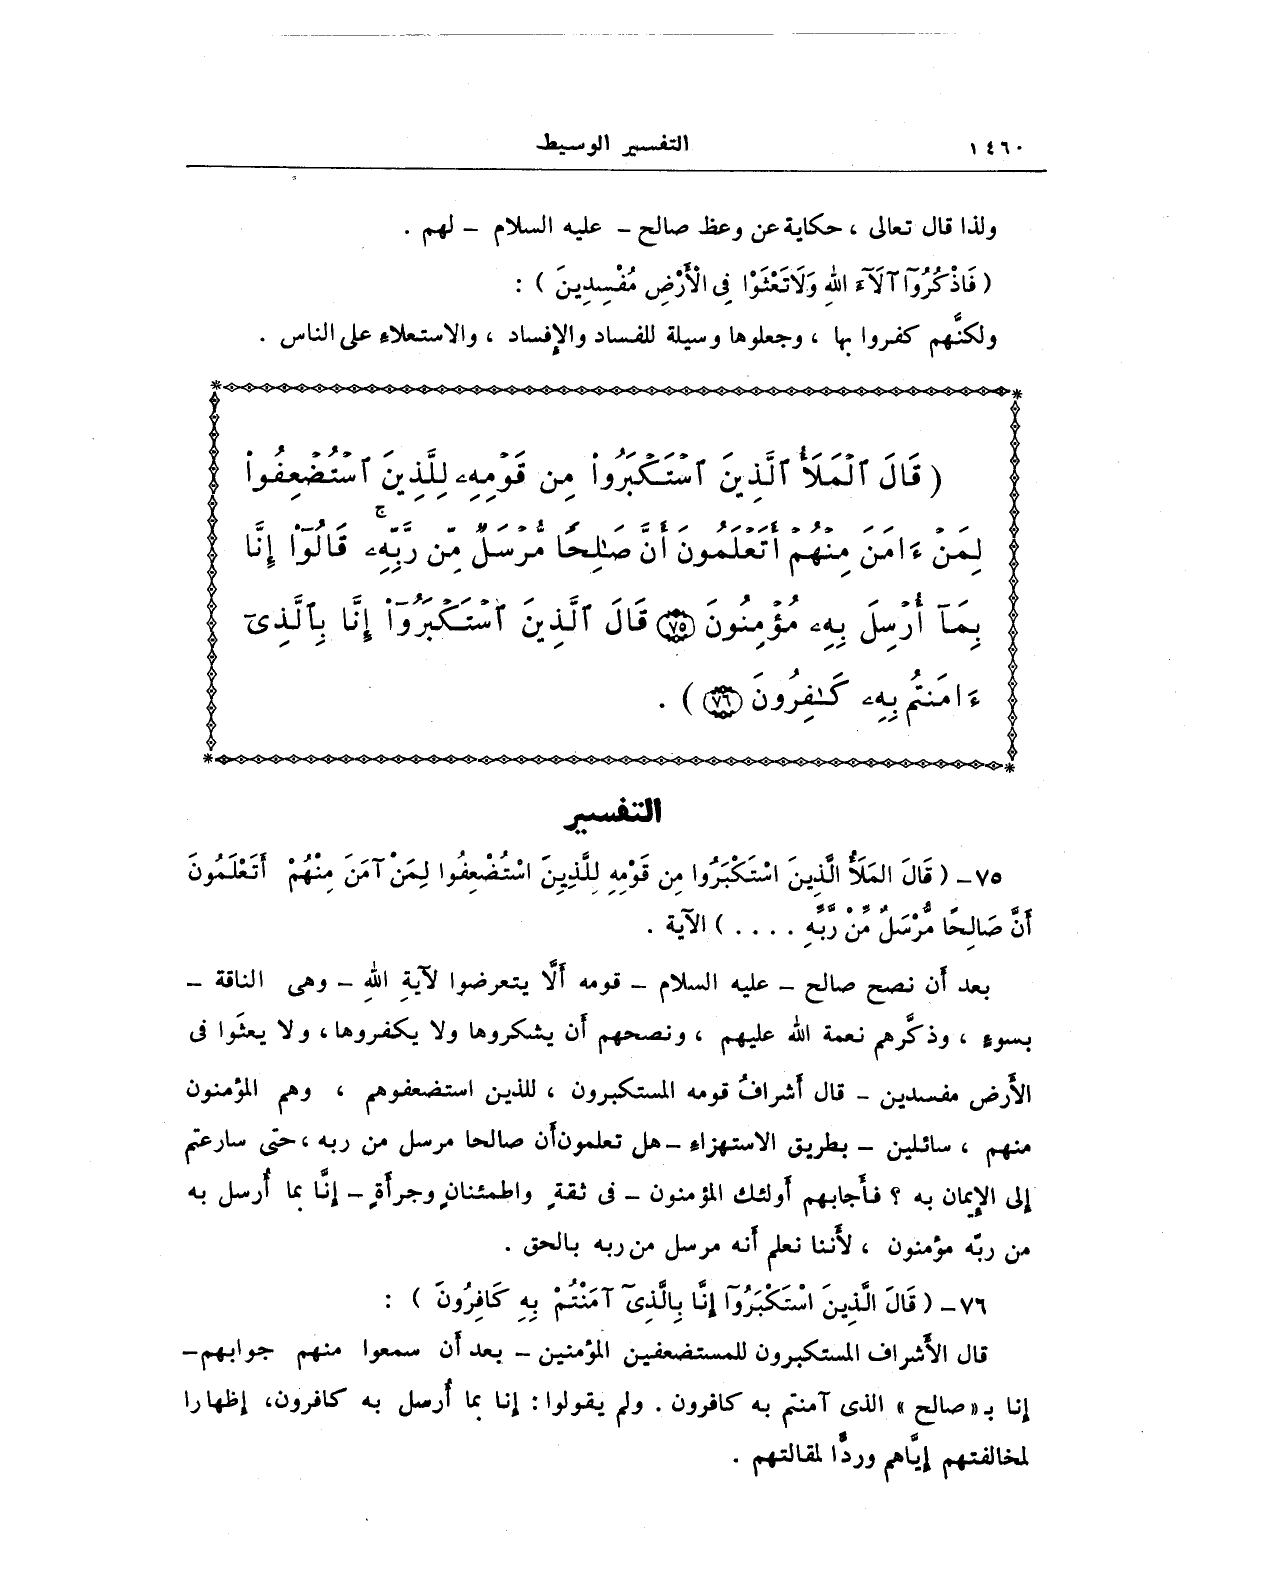 ١٤٦٠ التفسير الوسيط
ولذا قال تعالى ، حكاية عن وعظ صالح – عليه السلام – لهم .
( فَاذْكُرُوٓا آلَآءَ اللهِ وَلَا تَعْثَوْا فِى الْأَرْضِ مُفْسِدِينَ ) :
ولكنَّهم كفروا بها ، وجعلوها وسيلة للفساد والإفساد ، والاستعلاء على الناس .
( قَالَ ٱلْمَلَأُ ٱلَّذِينَ ٱسْتَكْبَرُوا۟ مِن قَوْمِهِۦ لِلَّذِينَ ٱسْتُضْعِفُوا۟
لِمَنْ ءَامَنَ مِنْهُمْ أَتَعْلَمُونَ أَنَّ صَـٰلِحًا مُّرْسَلٌ مِّن رَّبِّهِۦ ۚ قَالُوٓا۟ إِنَّا
بِمَآ أُرْسِلَ بِهِۦ مُؤْمِنُونَ ٧٥ قَالَ ٱلَّذِينَ ٱسْتَكْبَرُوٓا۟ إِنَّا بِٱلَّذِىٓ
ءَامَنتُم بِهِۦ كَـٰفِرُونَ ٧٦ ) .
التفسير
٧٥ – ( قَالَ المَلَأُ الَّذِينَ اسْتَكْبَرُوا مِن قَوْمِهِ لِلَّذِينَ اسْتُضْعِفُوا لِمَنْ آمَنَ مِنْهُمْ أَتَعْلَمُونَ
أَنَّ صَالِحًا مُّرْسَلٌ مِّنْ رَّبِّهِ . . . . ) الآية .
بعد أن نصح صالح – عليه السلام – قومه ألَّا يتعرضوا لآيةِ اللهِ – وهى الناقة –
بسوءٍ ، وذكَّرهم نعمة الله عليهم ، ونصحهم أن يشكروها ولا يكفروها ، ولا يعثَوا فى
الأرض مفسدين – قال أشرافُ قومه المستكبرون ، للذين استضعفوهم ، وهم المؤمنون
منهم ، سائلين – بطريق الاستهزاء – هل تعلمون أن صالحا مرسل من ربه ، حتى سارعتم
إلى الإيمان به ؟ فأجابهم أولئك المؤمنون – فى ثقةٍ واطمئنانٍ وجرأةٍ – إنَّا بما أُرسل به
من ربّه مؤمنون ، لأننا نعلم أنه مرسل من ربه بالحق .
٧٦ – ( قَالَ الَّذِينَ اسْتَكْبَرُوٓا إِنَّا بِالَّذِىٓ آمَنْتُمْ بِهِ كَافِرُونَ ) :
قال الأشراف المستكبرون للمستضعفين المؤمنين – بعد أن سمعوا منهم جوابهم –
إنا بـ « صالح » الذى آمنتم به كافرون . ولم يقولوا : إنا بما أُرسل به كافرون، إظهارا
لمخالفتهم إيَّاهم وردًّا لمقالتهم .